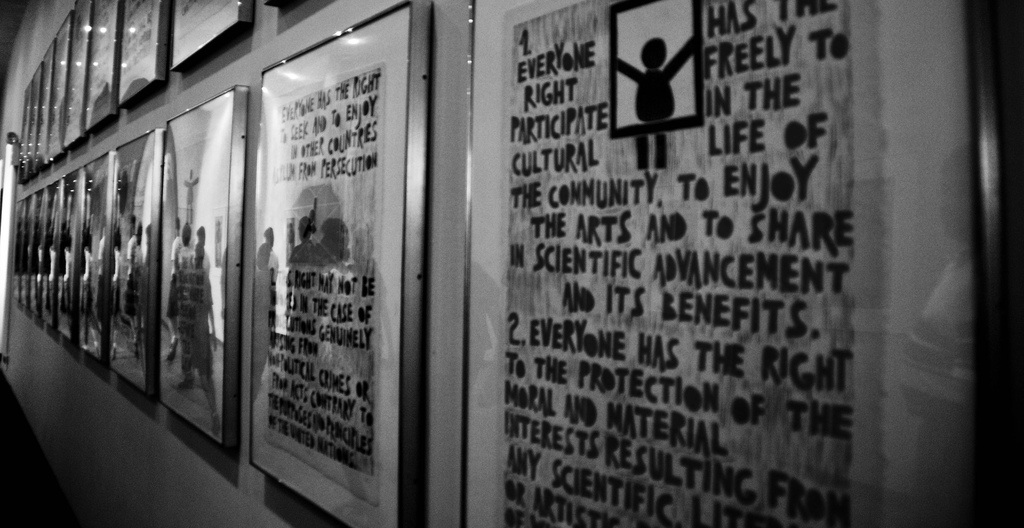 EVERYONE HAS THE RIGHT
TO SEEK AND TO ENJOY
IN OTHER COUNTRIES
ASYLUM FROM PERSECUTION
RIGHT MAY NOT BE
IN THE CASE OF
GENUINELY
FROM
CRIMES OR
FROM ACTS CONTRARY TO
THE PURPOSES AND PRINCIPLES
OF THE UNITED NATIONS
1.
EVERYONE HAS THE
RIGHT FREELY TO
PARTICIPATE IN THE
CULTURAL LIFE OF
THE COMMUNITY, TO ENJOY
THE ARTS AND TO SHARE
IN SCIENTIFIC ADVANCEMENT
AND ITS BENEFITS.
2. EVERYONE HAS THE RIGHT
TO THE PROTECTION OF THE
MORAL AND MATERIAL
INTERESTS RESULTING FROM
ANY SCIENTIFIC,
OR ARTISTIC